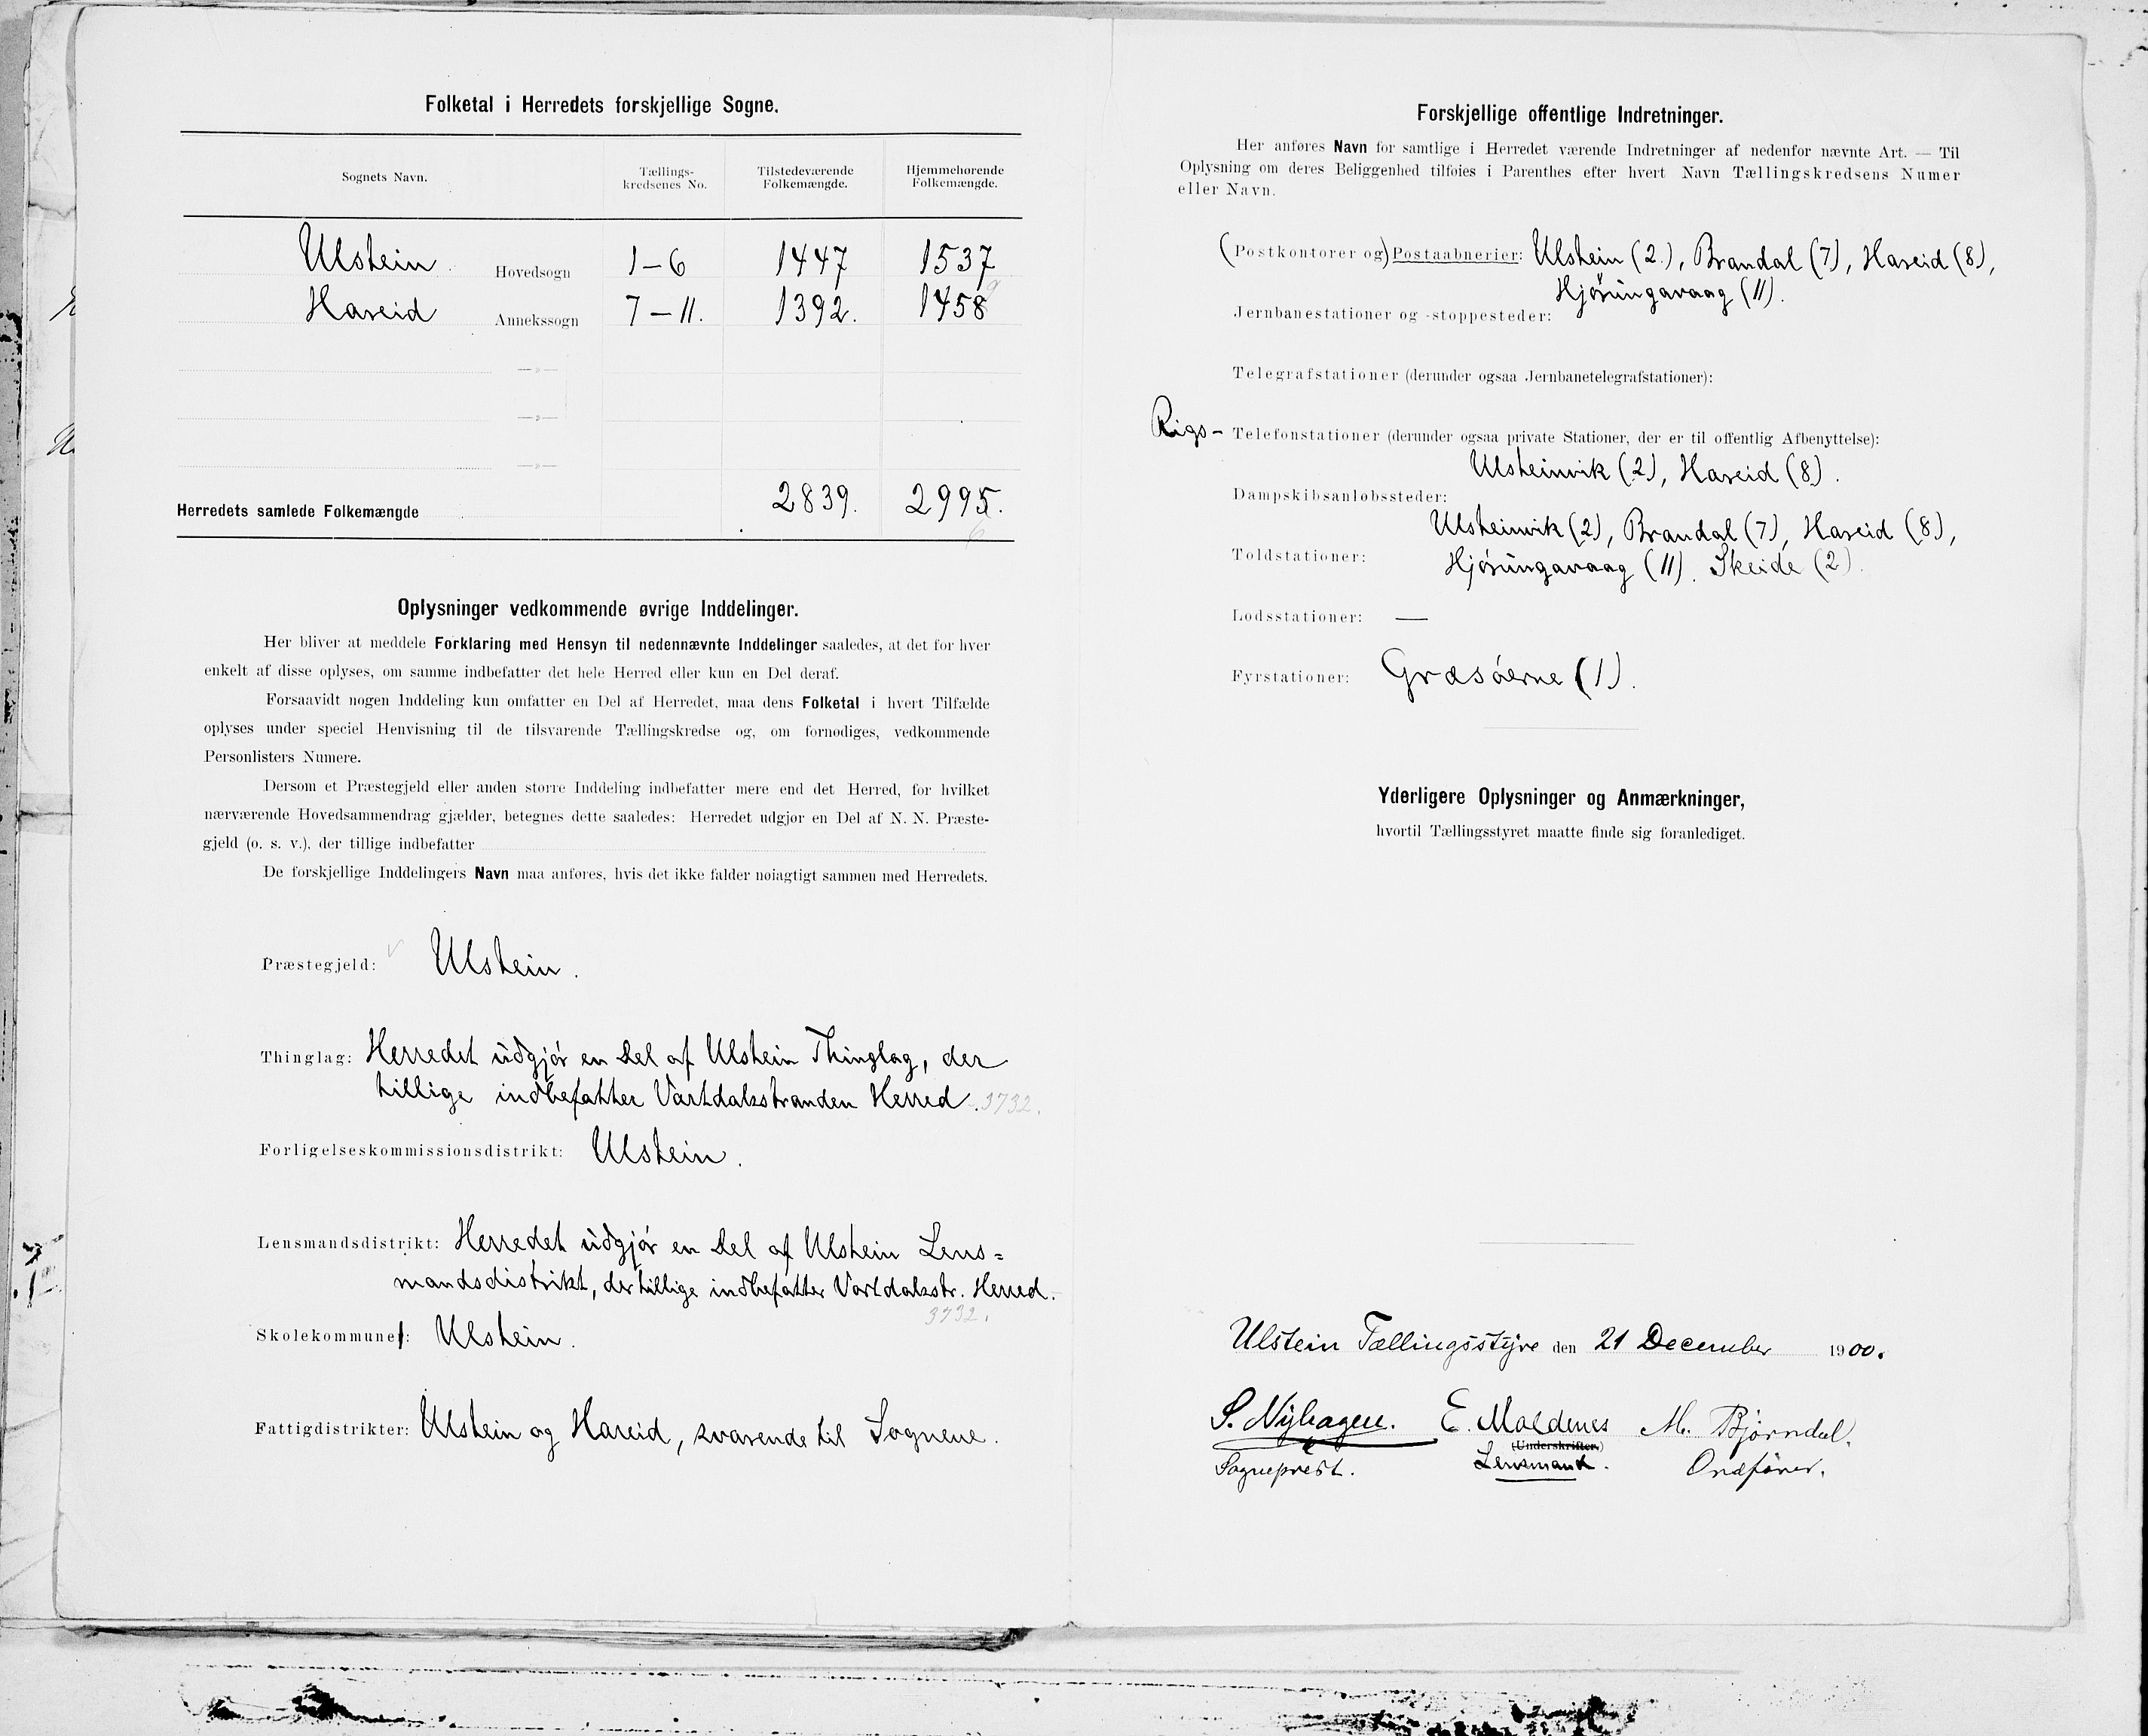 Folketal i Herredets forskjellige Sogne.
Sognets Navn. Tællings-kredsenes No. Tilstedeværende Folkemængde. Hjemmehørende Folkemængde.
Ulstein Hovedsogn 1-6 1447 1537
Hareid Annekssogn 7-11. 1392. 1458 9
—»—
—»—
—»—
Herredets samlede Folkemængde 2839. 2995.
6
Oplysninger vedkommende øvrige Inddelinger.
Her bliver at meddele Forklaring med Hensyn til nedennævnte Inddelinger saaledes, at det for hver
enkelt af disse oplyses, om samme indbefatter det hele Herred eller kun en Del deraf.
Forsaavidt nogen Inddeling kun omfatter en Del af Herredet, maa dens Folketal i hvert Tilfælde
oplyses under speciel Henvisning til de tilsvarende Tællingskredse og, om fornødiges, vedkommende
Personlisters Numere.
Dersom et Præstegjeld eller anden større Inddeling indbefatter mere end det Herred, for hvilket
nærværende Hovedsammendrag gjælder, betegnes dette saaledes: Herredet udgjør en Del af N. N. Præste-
gjeld (o. s. v.), der tillige indbefatter
De forskjellige Inddelingers Navn maa anføres, hvis det ikke falder nøiagtigt sammen med Herredets.
Præstegjeld: Ulstein.
Thinglag: Herredet udgjør en Del af Ulstein Thinglag, der
tillige indbefatter Vartdalsstranden Herred. 3732.
Forligelseskommissionsdistrikt: Ulstein.
Lensmandsdistrikt: Herredet udgjør en Del af Ulstein Lens=
mandsdistrikt, der tillige indbefatter Vartdalsstr. Herred.
3732.
Skolekommune: Ulstein.
Fattigdistrikter: Ulstein og Hareid, svarende til Sognene.
Forskjellige offentlige Indretninger.
Her anføres Navn for samtlige i Herredet værende Indretninger af nedenfor nævnte Art. — Til
Oplysning om deres Beliggenhed tilføies i Parenthes efter hvert Navn Tællingskredsens Numer
eller Navn.
(Postkontorer og) Postaabnerier: Ulstein (2.), Brandal (7), Hareid (8),
Hjørungavaag (11).
Jernbanestationer og -stoppesteder:
Telegrafstationer (derunder ogsaa Jernbanetelegrafstationer):
Rigs- Telefonstationer (derunder ogsaa private Stationer, der er til offentlig Afbenyttelse):
Ulsteinvik (2), Hareid (8).
Dampskibsanløbssteder:
Ulsteinvik (2), Brandal (7), Hareid (8),
Toldstationer: Hjørungavaag (11). Skeide (2).
Lodsstationer: —
Fyrstationer: Græsøerne (1).
Yderligere Oplysninger og Anmærkninger,
hvortil Tællingsstyret maatte finde sig foranlediget.
Ulstein Tællingsstyre den 21 December 1900.
S. Nyhagen. E. Moldenes M. Bjørndal.
(Underskrifter)
Sogneprest. Lensmand. Ordfører.